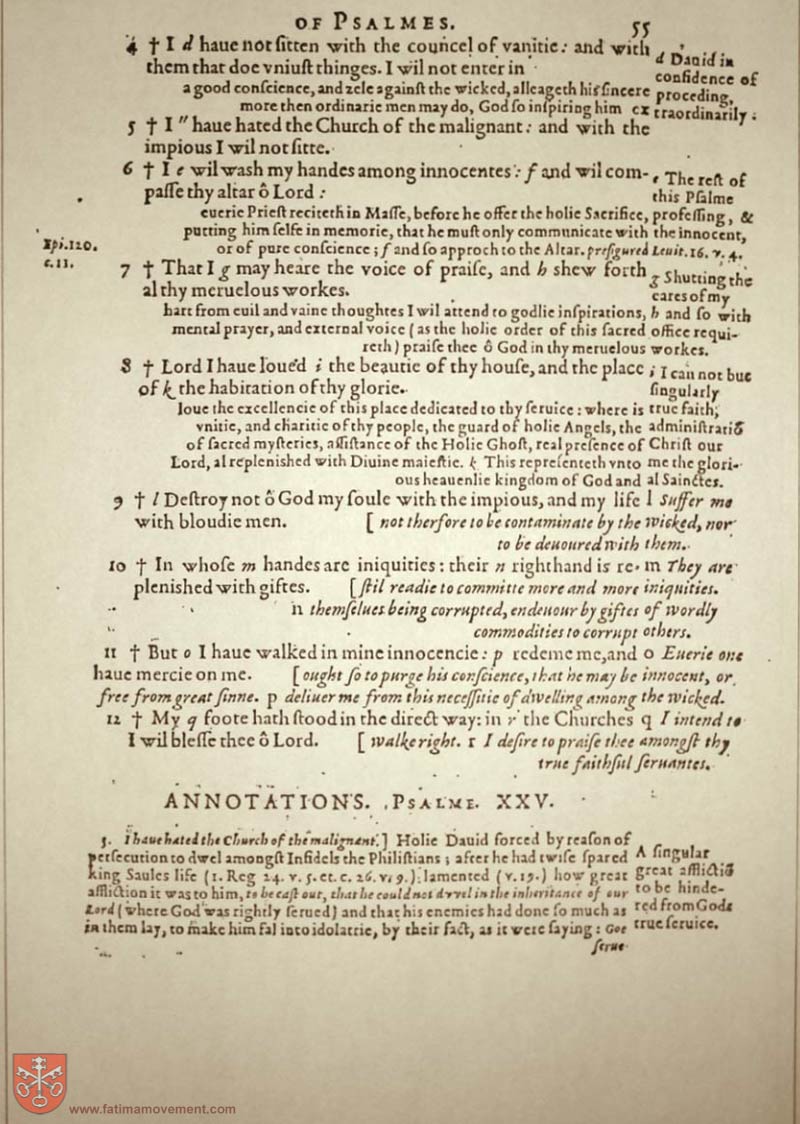 OF PSALMES. 55
4 † I d haue not ſitten with the councel of vanitie: and with
them that doe vniuſt thinges. I wil not enter in
d Dauid in
confidence of
a good conſcience, and zele againſt the wicked, alleageth his ſincere proceding,
more then ordinarie men may do, God ſo inſpiring him extraordinarily:
5 † I " haue hated the Church of the malignant: and with the
impious I wil not ſitte.
6 † I e wil waſh my handes among innocentes: f and wil com-
paſſe thy altar ô Lord:
e The reſt of
this Pſalme
euerie Prieſt reciteth in Maſſe, before he offer the holie Sacrifice, profeſſing, &
putting him ſelfe in memorie, that he muſt only communicate with the innocent,
or of pure conſcience; f and ſo approch to the Altar. prefigured Leuit. 16. v. 4.
Xpi. 120.
c. 11.
7 † That I g may heare the voice of praiſe, and h shew forth
al thy meruelous workes.
g Shutting the
eares of my
hart from euil and vaine thoughtes I wil attend to godlie inſpirations, h and ſo with
mental prayer, and external voice (as the holie order of this ſacred office requi-
reth) praiſe thee ô God in thy meruelous workes.
8 † Lord I haue loued i the beautie of thy houſe, and the place
of k the habitation of thy glorie.
i I can not but
ſingularly
loue the excellencie of this place dedicated to thy ſeruice: where is true faith,
vnitie, and charitie of thy people, the guard of holie Angels, the adminiſtratiõ
of ſacred myſteries, aſſiſtance of the Holie Ghoſt, real preſence of Chriſt our
Lord, al repleniſhed with Diuine maieſtie. k This repreſenteth vnto me the glori-
ous heauenlie kingdom of God and al Sainctes.
9 † l Deſtroy not ô God my ſoule with the impious, and my life l Suffer me
with bloudie men. [ not therfore to be contaminate by the wicked, nor
to be deuoured with them.
10 † In whoſe m handes are iniquities: their n righthand is re- m They are
pleniſhed with giftes. [ſtil readie to committe more and more iniquities.
n themſelues being corrupted, endeuour by giftes of wordly
commodities to corrupt others.
11 † But o I haue walked in mine innocencie: p redeme me, and o Euerie one
haue mercie on me. [ought ſo to purge his conſcience, that he may be innocent, or
free from great ſinne. p deliuer me from this neceſſitie of dwelling among the wicked.
12 † My q foote hath ſtood in the direct way: in r the Churches q I intend to
I wil bleſſe thee ô Lord. [ walke right. r I deſire to praiſe thee amongſt thy
true faithful ſeruantes.
ANNOTATIONS. PSALME. XXV.
5. I haue hated the Church of the malignant.] Holie Dauid forced by reaſon of
perſecution to dwel amongſt Infidels the Philiſtians; after he had twiſe ſpared
king Saules life (1. Reg 24. v. 5. et. c. 26. v. 9.) lamented (v. 19.) how great
affliction it was to him, to be caſt out, that he could not dwel in the inheritance of our
Lord (where God was rightly ſerued) and that his enemies had done ſo much as
in them lay, to make him fal into idolatrie, by their fact, as it were ſaying: Goe
ſerue
A ſingular
great afflictiõ
to be hinde-
red from Gods
true ſeruice.
www.fatimamovement.com